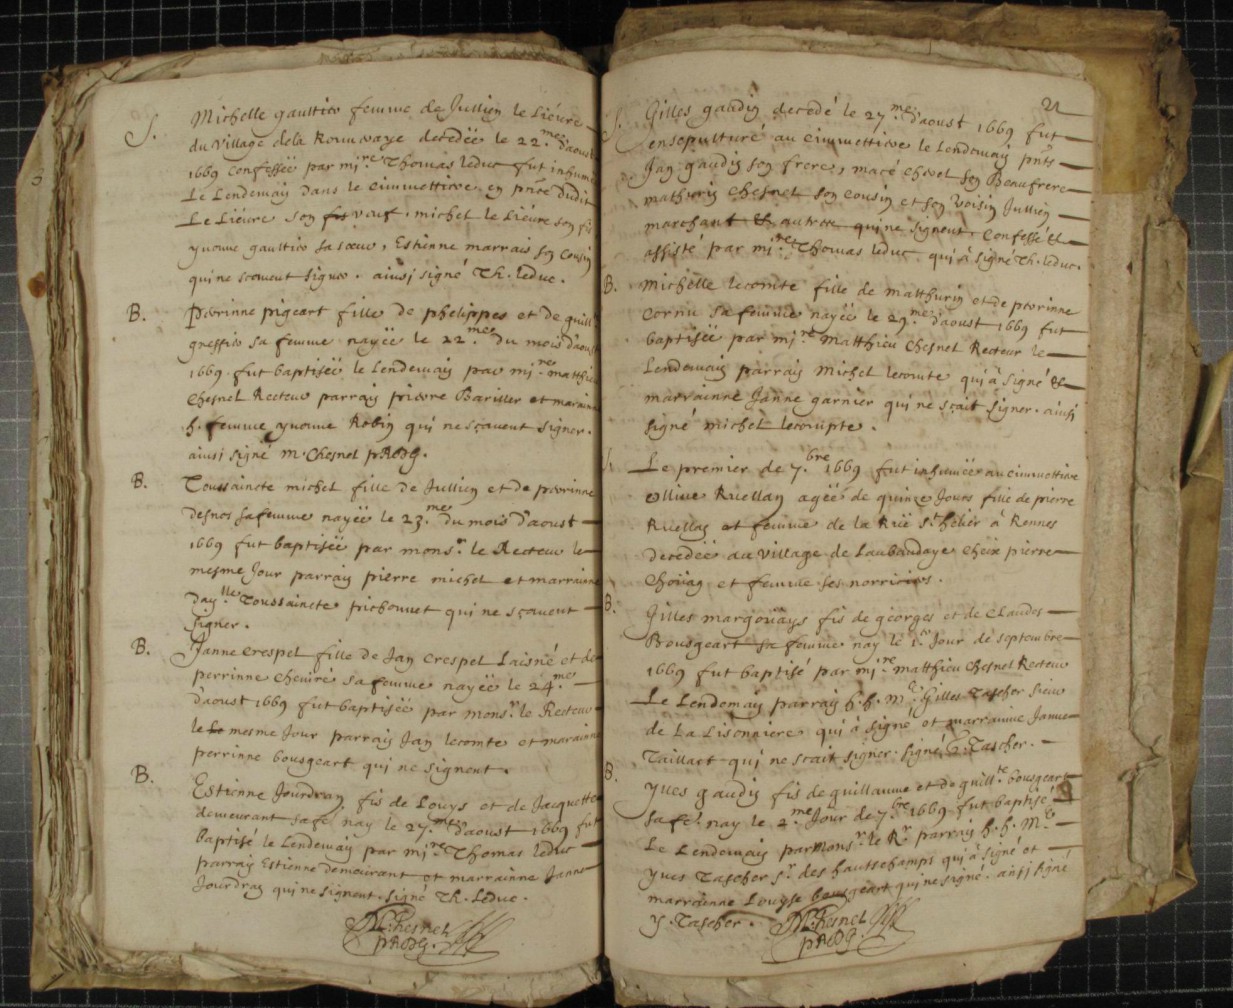 S. Michelle gaultier femme de Jullien le Liévre
du village de la Rouuraye decedëë le 22.me d'aoust
1669 Confessëë par mi.re Thomas leduc fut inhumé
Le Lendemain dans le Cimmettiere en pñce dudit
Le Liévre son fis veuf, michel le Liévre son fis
yvonne gaultier sa sœur, Estienne marrais son Cousin
qui ne scauent signer. ainsi signé Th. leduc.
B. Perrinne pigeart fille de phelippes et de guill
sa femme nayëë le 22.me du mois d'aoust
1669. fut baptisëë le Lendemain par mi.re matthieu
Chesnel Recteur parrain pierre Bariller et maraine
h. femme yvonne Robin qui ne sçauent signer.
ainsi signé M. Chesnel
B. Toussaincte michel fille de Jullien et de perrinne
desnos sa femme nayëë le 23.me du mois d'aoust
1669 fut baptisëë par mons.r le Recteur le
mesme Jour parrain pierre michel et marrainne
Dam.lle Toussaincte qui ne sçauent
signer.
B. Janne Crespel fille de Jan Crespel Laisné et de
perrinne Cheuire sa femme nayëë le 24.me
d'aoust 1669 fut baptisëe par mons.r le Recteur
le Le mesme Jour parrain Jan lecomte et maraine
perrinne bougeart qui ne signent.
B. Estienne Jourdran fis de Louys et de Jacquette
demeurant sa fe. nay le 27.me d'aoust 1669 fut
Baptisé le Lendemain par mi.re Thomas leduc
parrain Estienne demeurant et marrainne Janne
Jourdran qui ne signent. signé Th. Leduc.
M. Chesnel
21
S. Gilles gaudin decedé le 27.me d'aoust 1669 fut
ensepulturé au Cimmettiere le Lendemain pñts
Jan gaudin son frere, macé Chevel son Beaufrere
mathurin Chesnel son Cousin et son voisin Jullien
marchant Et autres qui ne signent. Confessé Et
assisté par mi.re Thomas leduc qui a signé Th. leduc.
B. Michelle lecomte fille de matthurin et de perrinne
Cornu sa femme nayëe le 29.me d'aoust 1669 fut
baptisëe par mi.re Matthieu Chesnel Recteur le
Lendemain parrain Michel lecomte qui a signé Et
marrainne Janne garnier qui ne sçait signer. ainsi
signé michel lecompte.
Le premier de 7.bre 1669 fut inhumëe au Cimmettiere
ollive Ruellan agëe de quinze Jours fille de pierre
Ruellan et femme de la Rüe S.t helier a Rennes
Decedëe au village de Laubaudaye Cheix pierre
et femme ses norriciers.
B. Gilles margoüays fis de georges et de Claudes
Bougeart sa femme nay le 1.er Jour de septembre
1669 fut baptisé par mi.re matthieu Chesnel Recteur
Le Lendemain parrain h. h. M.e Gilles Tascher sieur
de La Lisonniere qui a signé et marrainne Janne
Taillart qui ne scait signer. signé, G. Tascher.
B. yves gaudin fis de guillaume et de guill.te bougeart
sa fe. nay le 2.me Jour de 7.bre 1669 fut baptisé
Le Lendemain par mons.r le R.r parrain h. h. M.e
yves Tascher s.r des hautschamps qui a signé et
marrainne Louyse bougeart qui ne signe. ainsi signé
y. Tascher. M. Chesnel